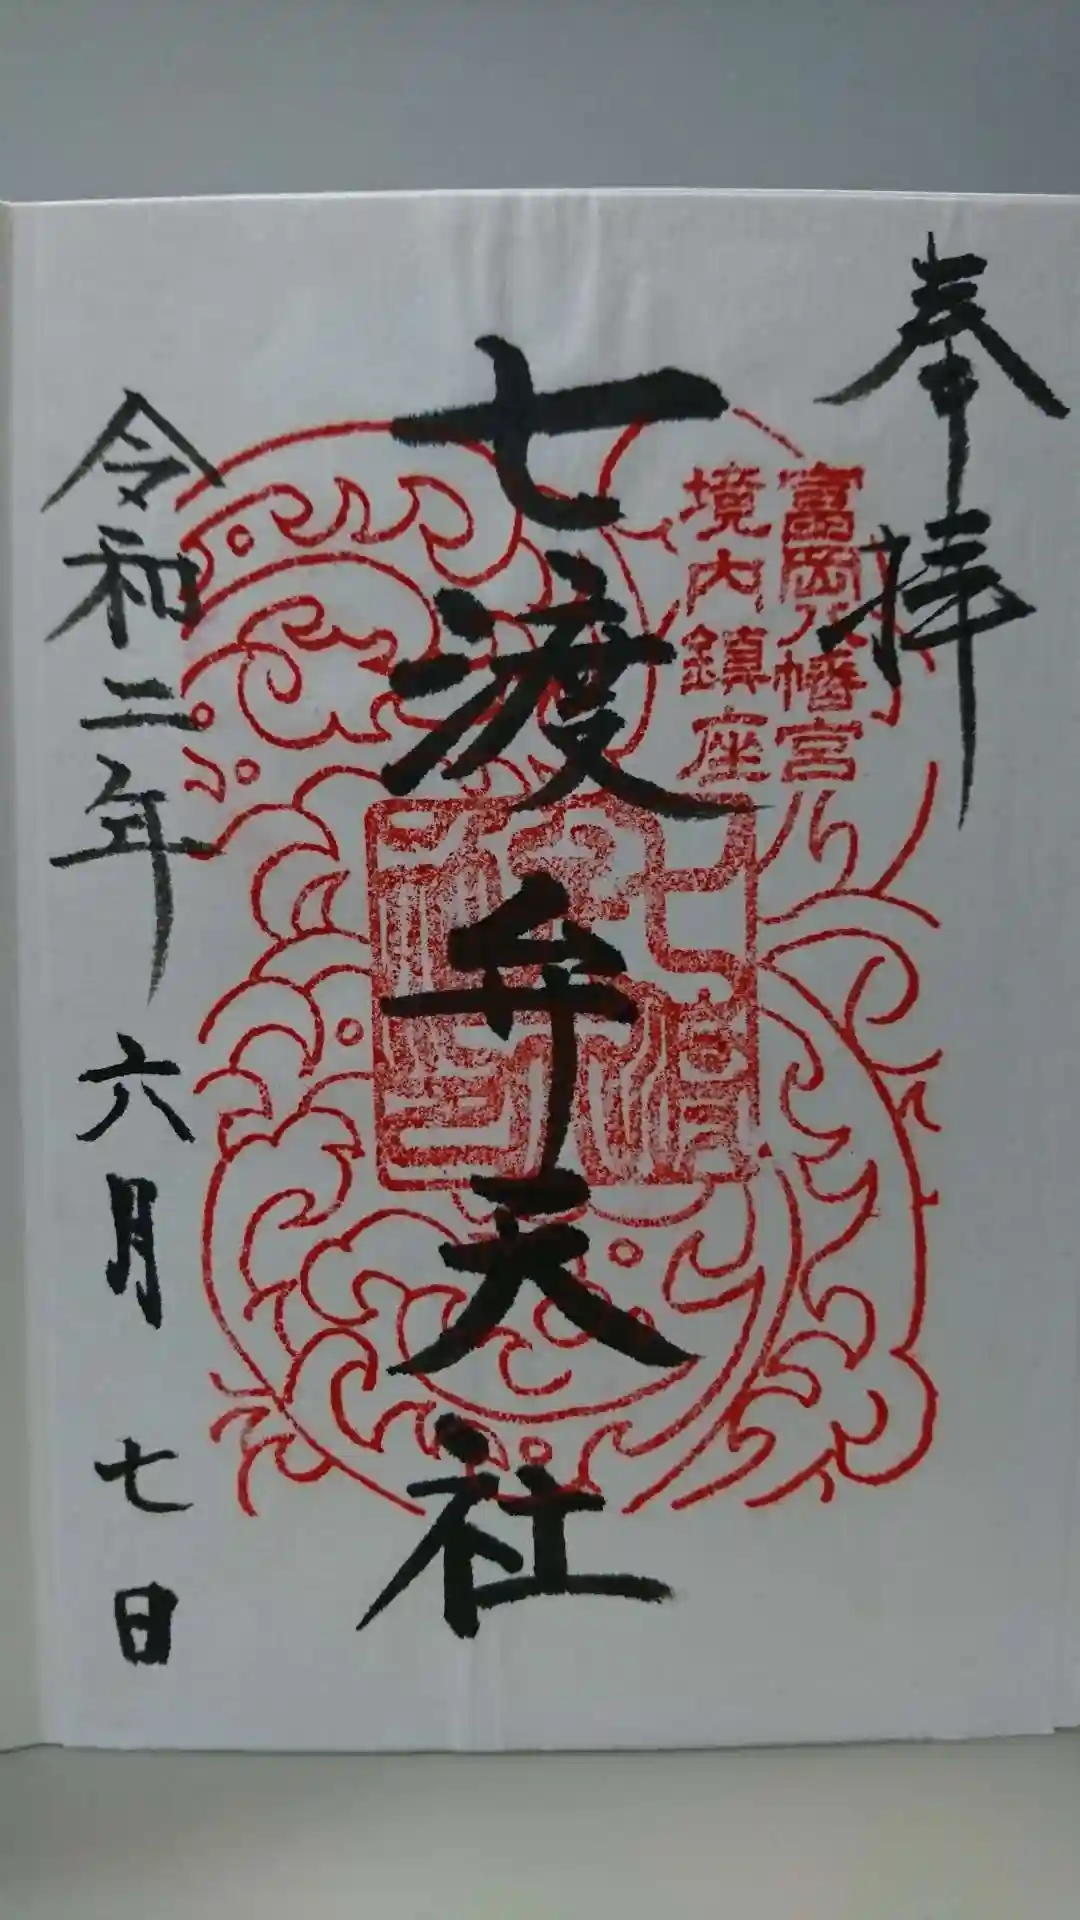 奉拝
富岡八幡宮
境内鎮座
七渡弁天社
令和二年六月七日